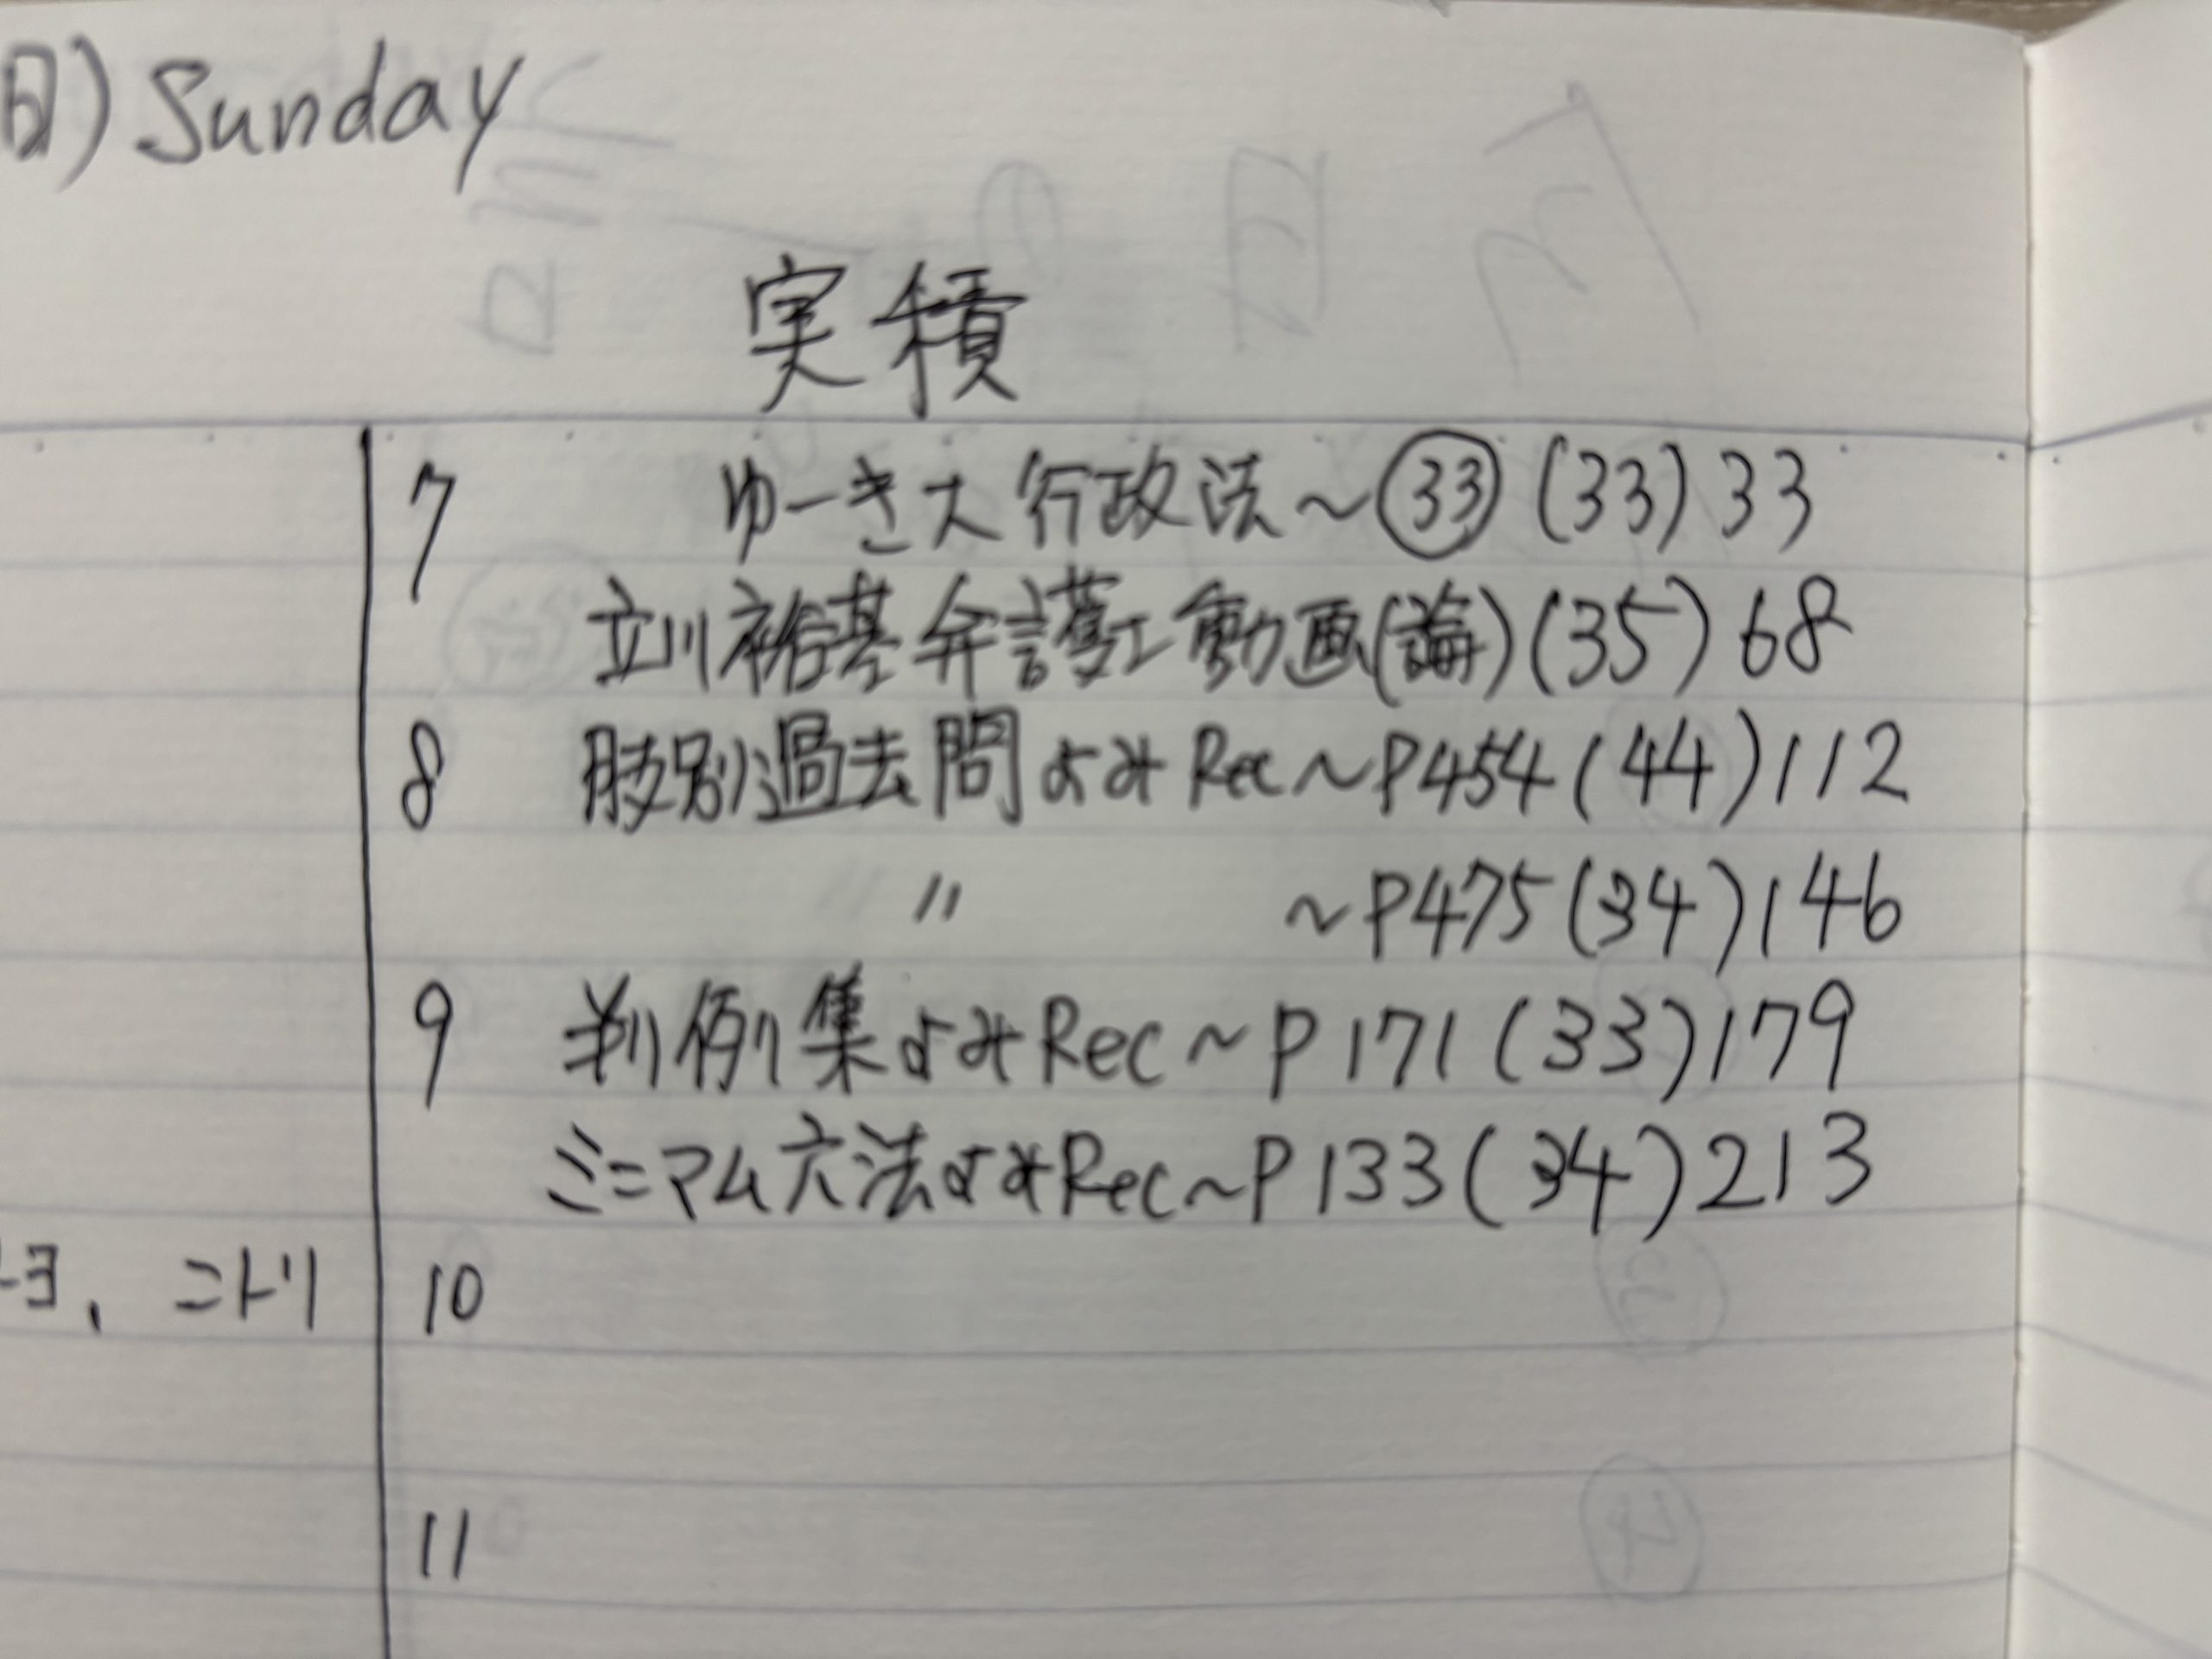 日) Sunday
実積
7 ゆーき大 行政法~㉝ (33) 33
立川裕基弁護士動画(論) (35) 68
8 肢別過去問よみRec~P454(44)112
〃 ~P475(34)146
9 判例集よみRec~P171(33)179
ミニマム六法よみRec~P133(34)213
ヨ、ニトリ 10
11